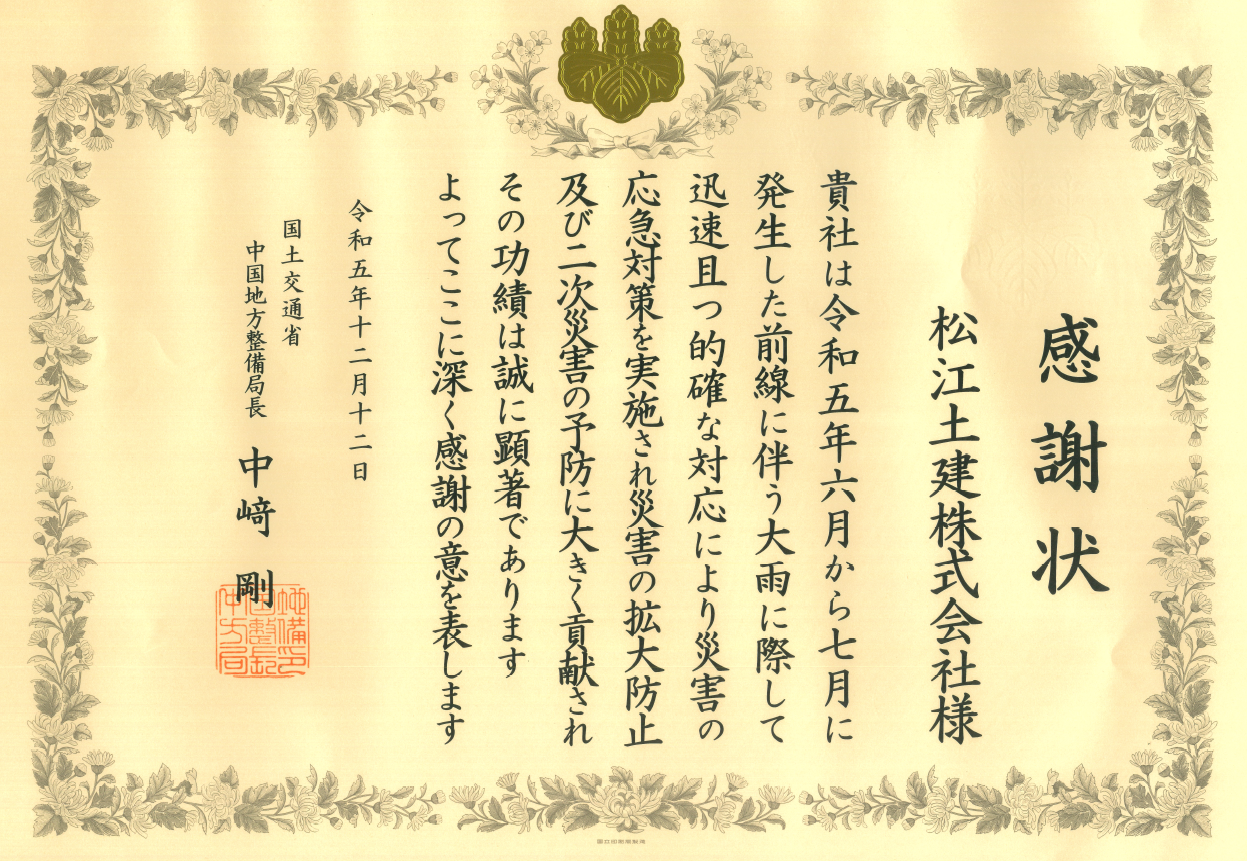 感謝状
松江土建株式会社様
貴社は令和五年六月から七月に
発生した前線に伴う大雨に際して
迅速且つ的確な対応により災害の
応急対策を実施され災害の拡大防止
及び二次災害の予防に大きく貢献され
その功績は誠に顕著であります
よってここに深く感謝の意を表します
令和五年十二月十二日
国土交通省
中国地方整備局長
中﨑剛